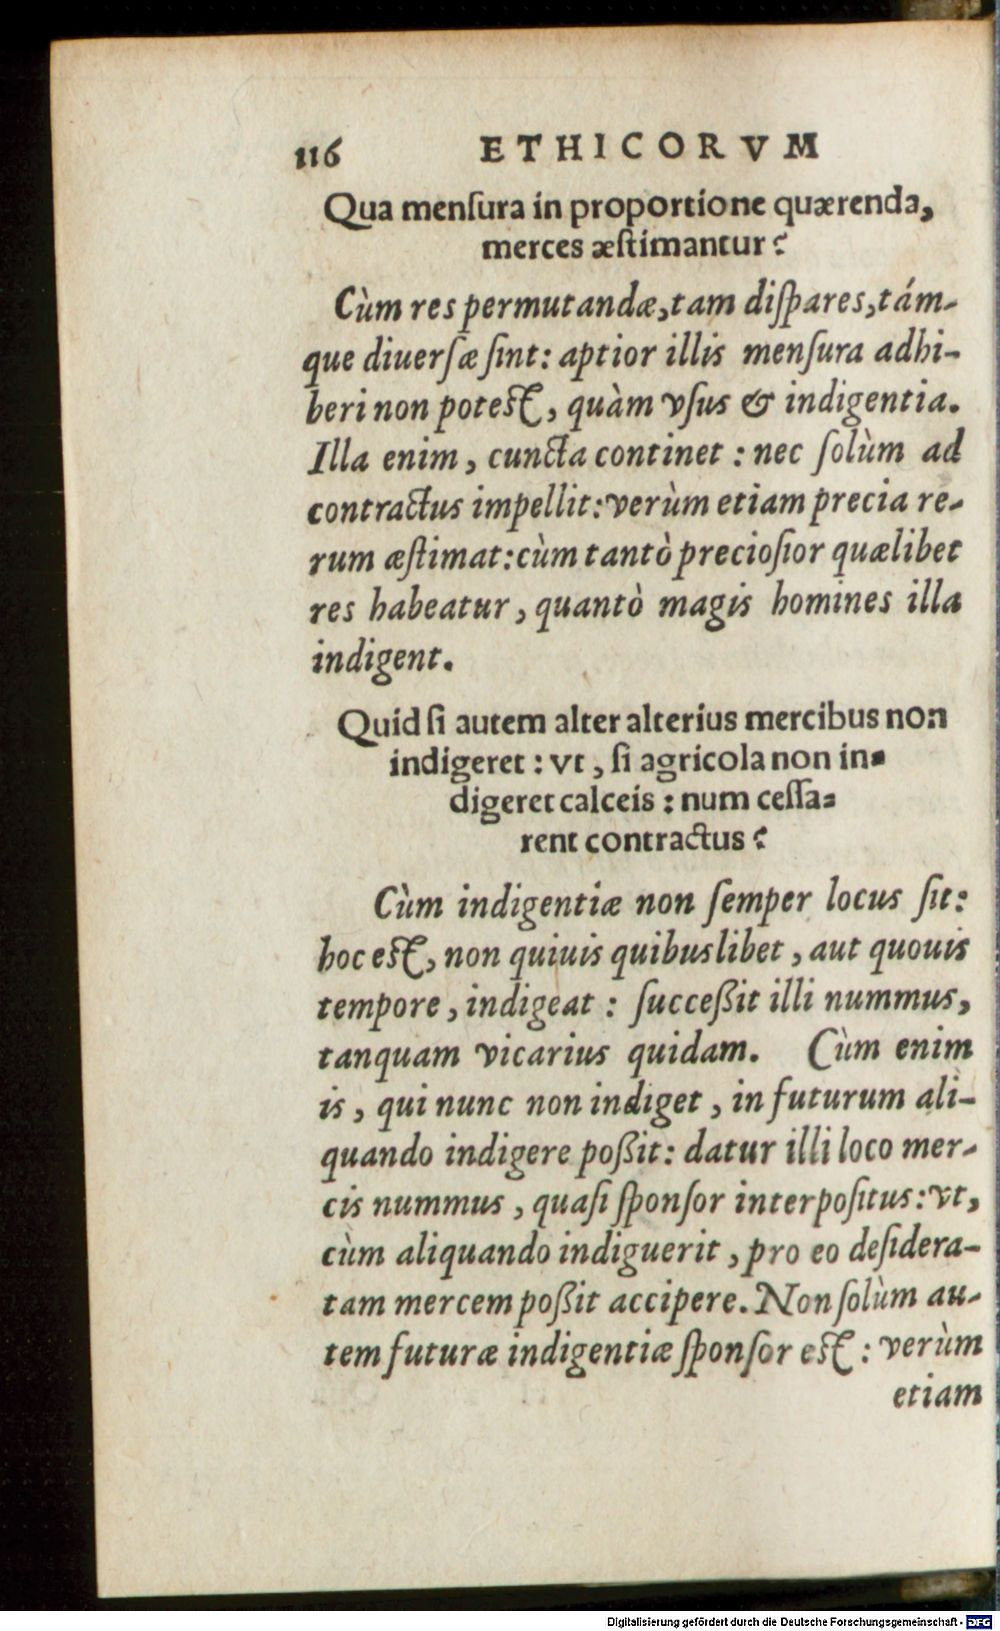 116 ETHICORVM
Qua menſura in proportione quærenda,
merces æſtimantur?
Cùm res permutandæ, tam diſpares, tám-
que diuerſæ ſint: aptior illis menſura adhi-
beri non poteſt, quàm vſus & indigentia.
Illa enim, cuncta continet: nec ſolùm ad
contractus impellit: verùm etiam precia re-
rum æſtimat: cùm tantò precioſior quælibet
res habeatur, quantò magis homines illa
indigent.
Quid ſi autem alter alterius mercibus non
indigeret: vt, ſi agricola non in-
digeret calceis: num ceſſa-
rent contractus?
Cùm indigentiæ non ſemper locus ſit:
hoc eſt, non quiuis quibuslibet, aut quouis
tempore, indigeat: ſucceßit illi nummus,
tanquam vicarius quidam. Cùm enim
is, qui nunc non indiget, in futurum ali-
quando indigere poßit: datur illi loco mer-
cis nummus, quaſi ſponſor interpoſitus: vt,
cùm aliquando indiguerit, pro eo deſidera-
tam mercem poßit accipere. Non ſolùm au-
tem futuræ indigentiæ ſponſor eſt: verùm
etiam
Digitalisierung gefördert durch die Deutsche Forschungsgemeinschaft - DFG